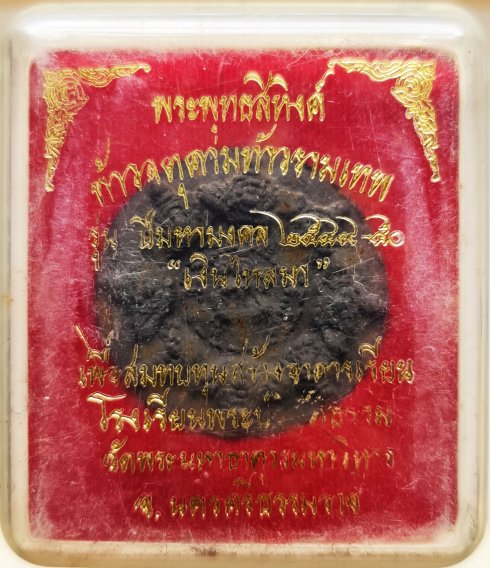 พระพุทธสิหิงค์
ท้าวจตุคามท้าวรามเทพ
รุ่น ปีมหามงคล ๒๕๔๙-๕๐
"เงินไหลมา"
เพื่อสมทบทุนสร้างอาคารเรียน
โรงเรียนพระ
วัดพระมหาธาตุวรมหาวิหาร
จ. นครศรีธรรมราช